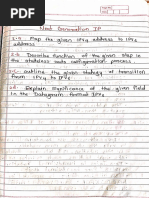 Next Generation IP
2.1 Map the given IPv4 address to IPv6
address
2.2 Describe function of the given step in
the stateless auto configuration process
2.3 outline the given stategy of transition
from IPv4 to IPv6
2.4 Explain significance of the given field
in the Datagram format IPv6